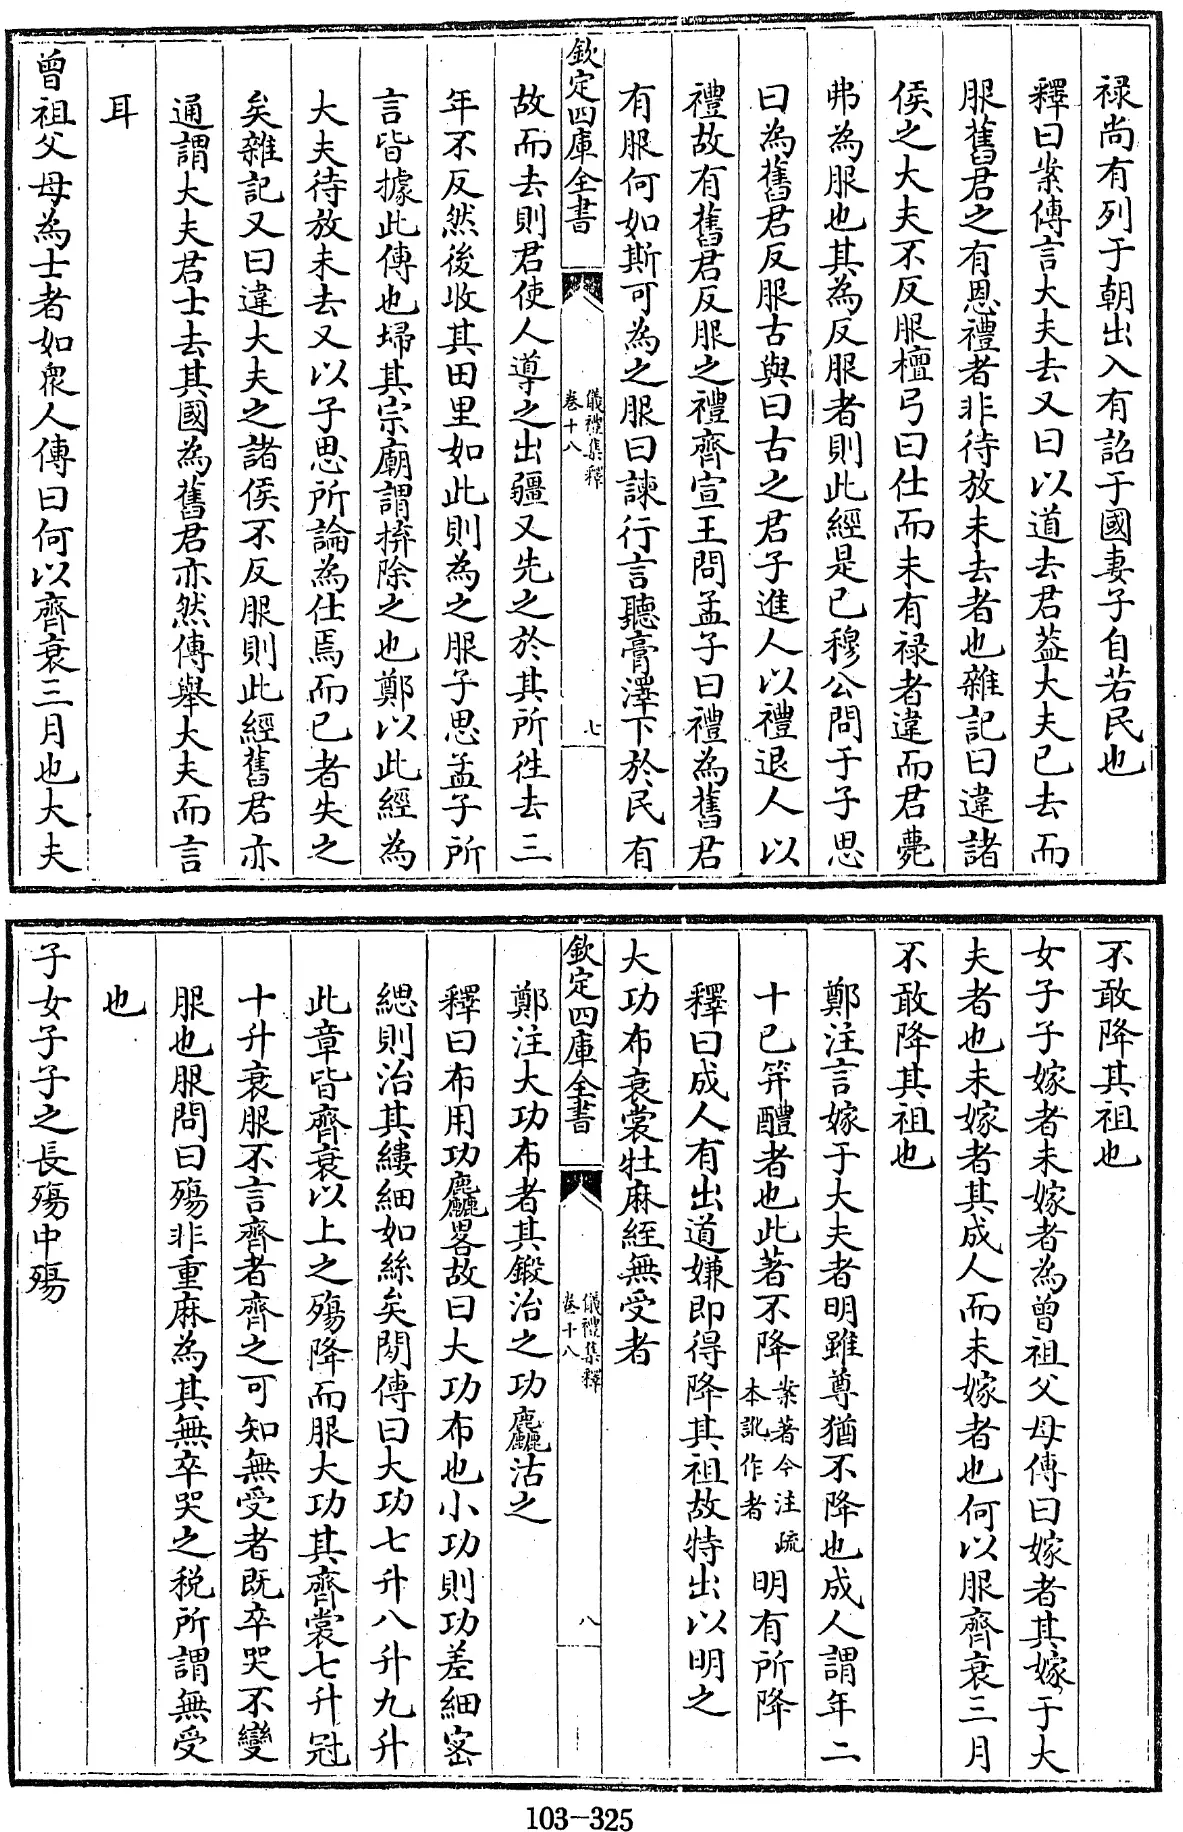 禄尚有列于朝出入有詔于國妻子自若民也
釋曰案傳言大夫去又曰以道去君葢大夫已去而
服舊君之有恩禮者非待放未去者也雜記曰違諸
侯之大夫不反服檀弓曰仕而未有禄者違而君薨
弗為服也其為反服者則此經是已穆公問于子思
曰為舊君反服古與曰古之君子進人以禮退人以
禮故有舊君反服之禮齊宣王問孟子曰禮為舊君
有服何如斯可為之服曰諫行言聽膏澤下於民有
欽定四庫全書
儀禮集釋
卷十八
七
故而去則君使人導之出疆又先之於其所徃去三
年不反然後收其田里如此則為之服子思孟子所
言皆據此傳也埽其宗廟謂摒除之也鄭以此經為
大夫待放未去又以子思所論為仕焉而已者失之
矣雜記又曰違大夫之諸侯不反服則此經舊君亦
通謂大夫君士去其國為舊君亦然傳舉大夫而言
耳
曾祖父母為士者如衆人傳曰何以齊衰三月也大夫
不敢降其祖也
女子子嫁者未嫁者為曾祖父母傳曰嫁者其嫁于大
夫者也未嫁者其成人而未嫁者也何以服齊衰三月
不敢降其祖也
鄭注言嫁于大夫者明雖尊猶不降也成人謂年二
十已笄醴者也此著不降案著今注疏本訛作者明有所降
釋曰成人有出道嫌即得降其祖故特出以明之
大功布衰裳牡麻絰無受者
欽定四庫全書
儀禮集釋
卷十八
八
鄭注大功布者其鍛治之功麤沽之
釋曰布用功麤畧故曰大功布也小功則功差細密
緦則治其縷細如絲矣閒傳曰大功七升八升九升
此章皆齊衰以上之殤降而服大功其齊裳七升冠
十升衰服不言齊者齊之可知無受者既卒哭不變
服也服問曰殤非重麻為其無卒哭之税所謂無受
也
子女子子之長殤中殤
103-325